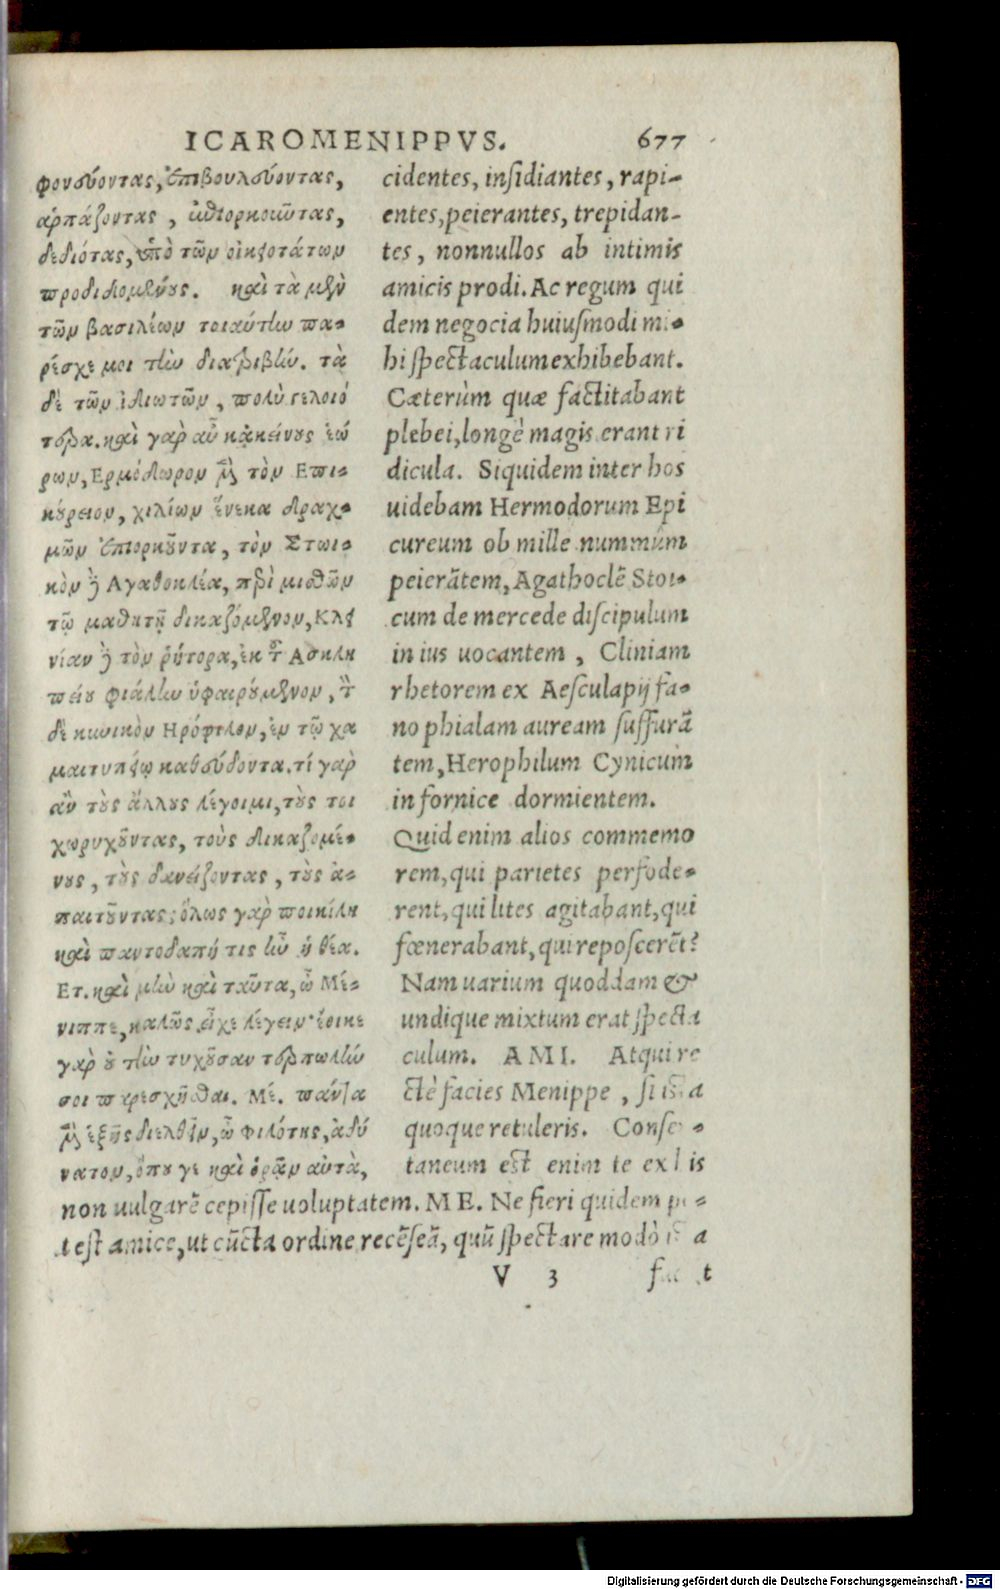 ICAROMENIPPVS. 677
φονεύοντας, ἐπιβουλεύοντας,
ἁρπάζοντας, ἐπιορκοῦντας,
δεδιότας, ὑπὸ τῶν οἰκειοτάτων
προδιδομένους. καὶ τὰ μὲν
τῶν βασιλέων τοιαύτην πα-
ρέσχε μοι τὴν διατριβήν. τὰ
δὲ τῶν ἰδιωτῶν, πολὺ γελοιό
τερα. καὶ γὰρ αὖ κἀκείνους ἑώ
ρων, Ερμόδωρον μὲν τὸν Επι-
κούρειον, χιλίων ἕνεκα δραχ-
μῶν ἐπιορκοῦντα, τὸν Στωι-
κὸν δὲ Αγαθοκλέα, περὶ μισθοῦ
τῷ μαθητῇ δικαζόμενον, Κλει
νίαν δὲ τὸν ῥήτορα, ἐκ τοῦ Ασκλη
πείου φιάλην ὑφαιρούμενον, τὸν
δὲ κυνικὸν Ηρόφιλον, ἐν τῷ χα
μαιτυπείῳ καθεύδοντα. τί γὰρ
ἂν τοὺς ἄλλους λέγοιμι, τοὺς τοι
χωρυχοῦντας, τοὺς δικαζομέ-
νους, τοὺς δανείζοντας, τοὺς ἀ-
παιτοῦντας; ὅλως γὰρ ποικίλη
καὶ παντοδαπή τις ἦν ἡ θέα.
Ετ. καὶ μὴν καὶ ταῦτα, ὦ Μέ-
νιππε, καλῶς εἶχε λέγειν· ἔοικε
γὰρ οὐ τὴν τυχοῦσαν τερπωλήν
σοι παρεσχῆσθαι. Μέ. πάντα
μὲν ἑξῆς διελθεῖν, ὦ φιλότης, ἀδύ
νατον, ὅπου γε καὶ ὁρᾶν αὐτὰ,
cidentes, insidiantes, rapi-
entes, peierantes, trepidan-
tes, nonnullos ab intimis
amicis prodi. Ac regum qui
dem negocia huiusmodi mi-
hi spectaculum exhibebant.
Cæterùm quæ factitabant
plebei, longè magis erant ri
dicula. Siquidem inter hos
uidebam Hermodorum Epi
cureum ob mille nummûm
peierãtem, Agathoclẽ Stoi-
cum de mercede discipulum
in ius uocantem, Cliniam
rhetorem ex Aesculapij fa-
no phialam auream suffurã
tem, Herophilum Cynicum
in fornice dormientem.
Quid enim alios commemo
rem, qui parietes perfode-
rent, qui lites agitabant, qui
fœnerabant, qui reposcerẽt?
Nam uarium quoddam &
undique mixtum erat specta
culum. AMI. Atqui re
ctè facies Menippe, si ista
quoque retuleris. Conse-
taneum est enim te ex his
non uulgarẽ cepisse uoluptatem. ME. Ne fieri quidem po-
test amice, ut cũcta ordine recẽseã, quũ spectare modò ista
V 3